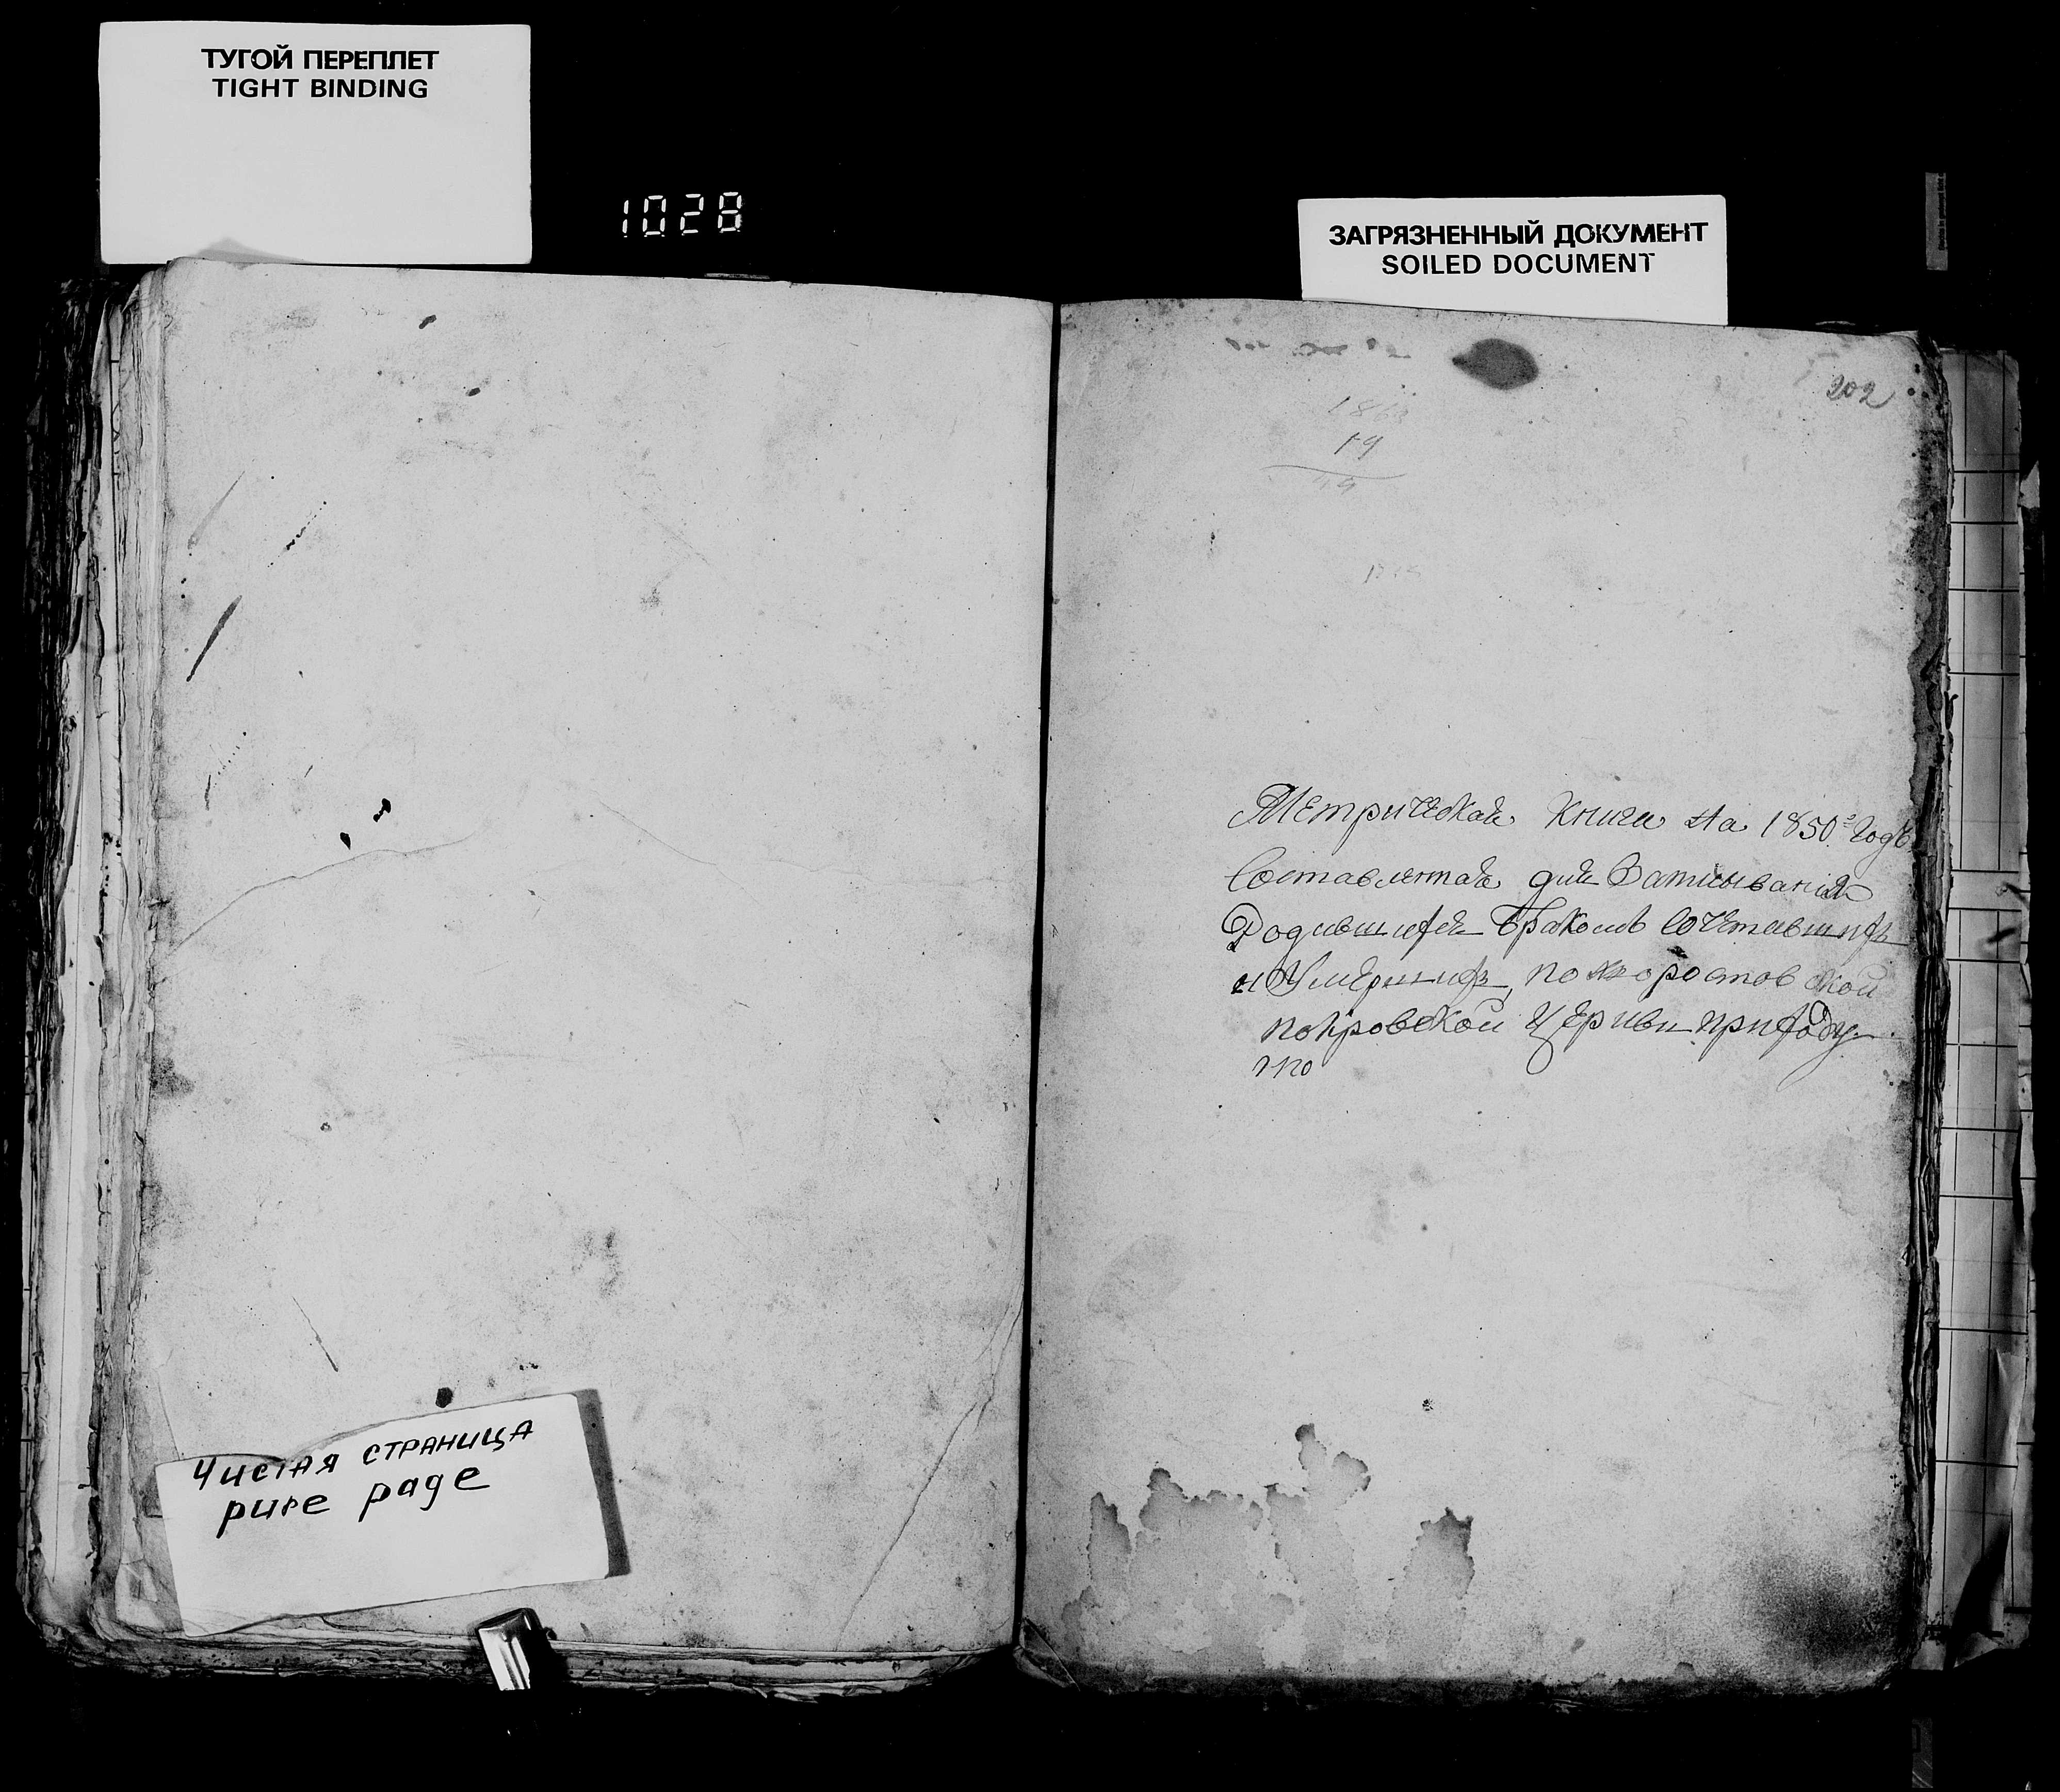 ТУГОЙ ПЕРЕПЛЕТ
TIGHT BINDING
1028
ЗАГРЯЗНЕННЫЙ ДОКУМЕНТ
SOILED DOCUMENT
202
19
Метрическая Книга На 1850й Годъ
Составленная для Записыванія
Родившихся Бракомъ Сочетавшихъ
и Умершихъ, по Хоростовской
покровской Церкви приходу
по
Чистая страница
pure page